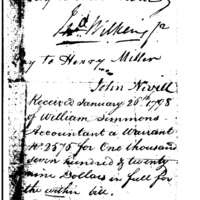 Jno. Wilkins Jr
pay to Henry Miller
John Nevill
Received January 26th 1798
of William Simmons
Accountant a Warrant
No. 2575 for One thousand
Seven hundred & twenty
nine Dollars in full for
the within bill.